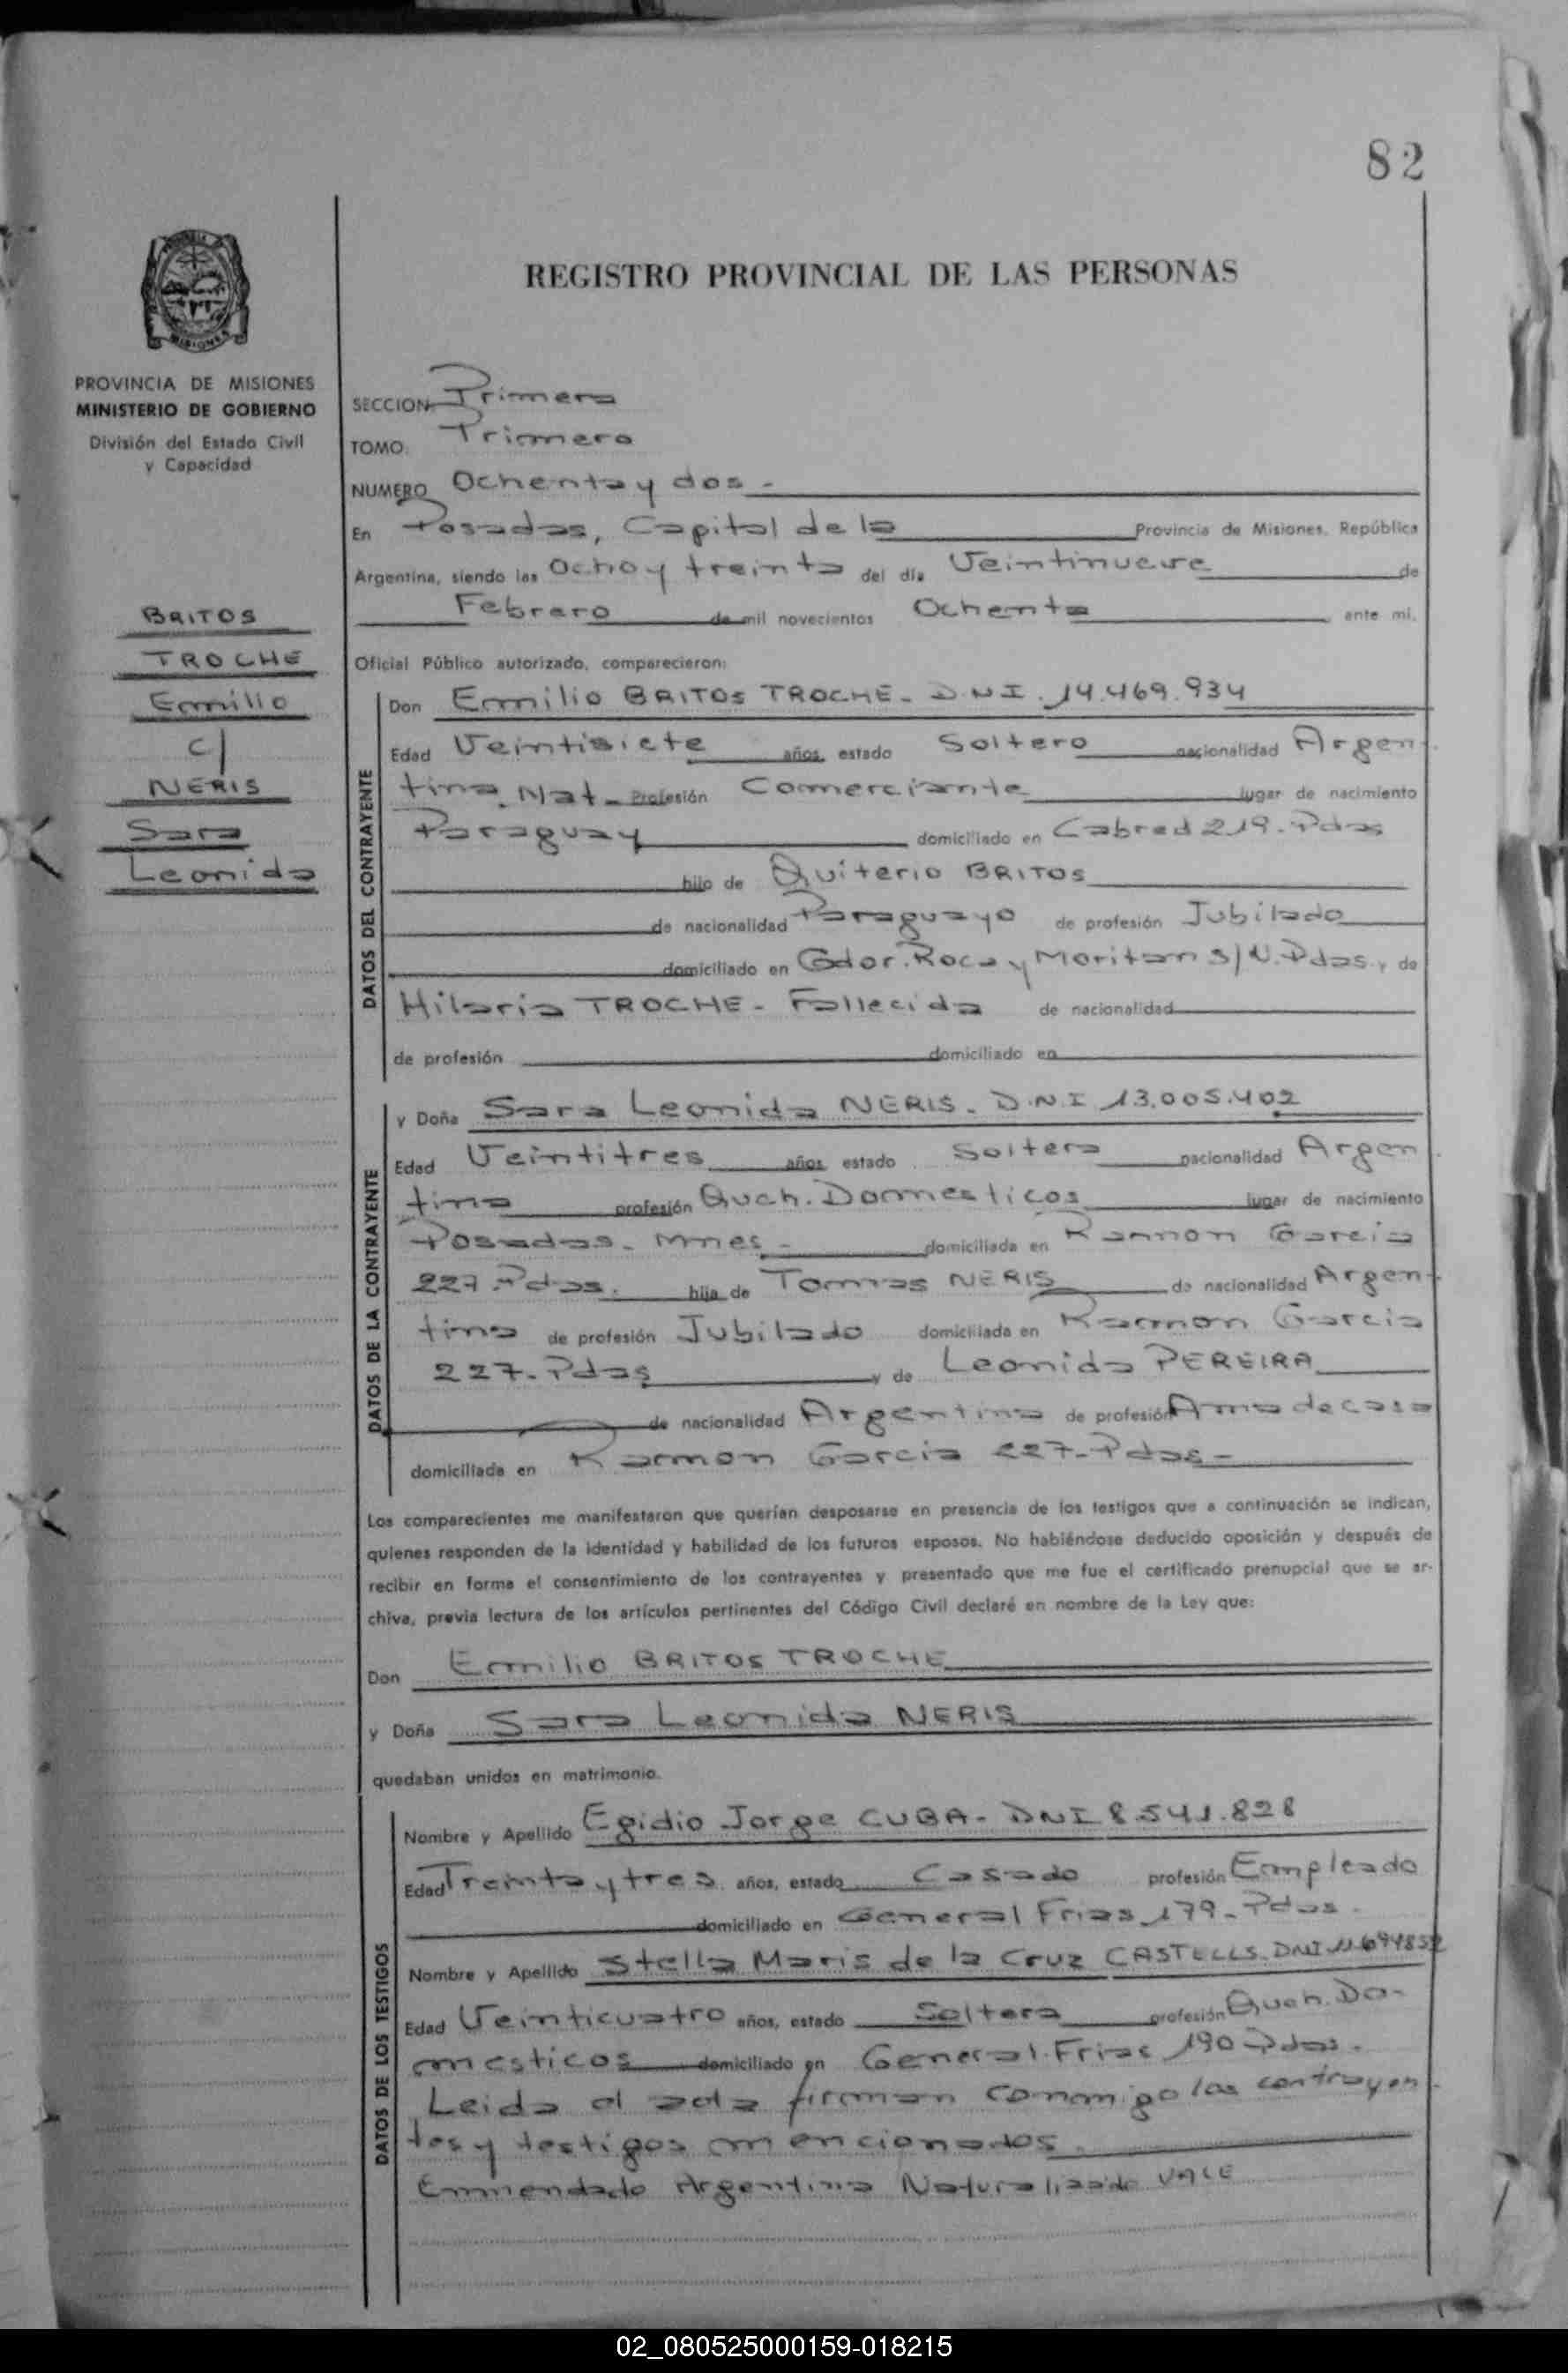 82
REGISTRO PROVINCIAL DE LAS PERSONAS
MISIONES
PROVINCIA DE MISIONES
MINISTERIO DE GOBIERNO
División del Estado Civil
y Capacidad
BRITOS
TROCHE
Emilio
c/
NERIS
Sara
Leonida
SECCION Primera
TOMO. Primero
NUMERO Ochenta y dos -
En Posadas, Capital de la Provincia de Misiones, República
Argentina, siendo las Ocho y treinta del día Veintinueve de
Febrero de mil novecientos Ochenta ante mi,
Oficial Público autorizado, comparecieron:
DATOS DEL CONTRAYENTE
Don Emilio BRITOS TROCHE - D.N.I. 14.469.934
Edad Veintisiete años, estado Soltero nacionalidad Argen-
tina Nat. Profesión Comerciante lugar de nacimiento
Paraguay domiciliado en Cabred 219. Pdas
hijo de Quiterio BRITOS
de nacionalidad Paraguayo de profesión Jubilado
domiciliado en Gdor. Roca y Moritan S/N. Pdas. y de
Hilaria TROCHE - Fallecida de nacionalidad
de profesión domiciliado en
DATOS DE LA CONTRAYENTE
y Doña Sara Leonida NERIS. D.N.I 13.005.402
Edad Veintitres años estado Soltera nacionalidad Argen
tina profesión Queh. Domesticos lugar de nacimiento
Posadas. Mnes - domiciliada en Ramon Garcia
227. Pdas. hija de Tomas NERIS de nacionalidad Argen-
tina de profesión Jubilado domiciliada en Ramon Garcia
227. Pdas y de Leonida PEREIRA
de nacionalidad Argentina de profesión Ama de casa
domiciliada en Ramon Garcia 227- Pdas -
Los comparecientes me manifestaron que querían desposarse en presencia de los testigos que a continuación se indican,
quienes responden de la identidad y habilidad de los futuros esposos. No habiéndose deducido oposición y después de
recibir en forma el consentimiento de los contrayentes y presentado que me fue el certificado prenupcial que se ar-
chiva, previa lectura de los artículos pertinentes del Código Civil declaré en nombre de la Ley que:
Don Emilio BRITOS TROCHE
y Doña Sara Leonida NERIS
quedaban unidos en matrimonio.
DATOS DE LOS TESTIGOS
Nombre y Apellido Egidio Jorge CUBA - DNI 8.541.828
Edad Treinta y tres años, estado Casado profesión Empleado
domiciliado en General Frias 179- Pdas.
Nombre y Apellido Stella Maris de la Cruz CASTELLS. DNI 11.694852
Edad Veinticuatro años, estado Soltera profesión Queh. Do-
mesticos domiciliado en General Frias 190 Pdas.
Leida el acta firman conmigo los contrayen-
tes y testigos mencionados.
Enmendado Argentina Naturalizado VALE
02_080525000159-018215